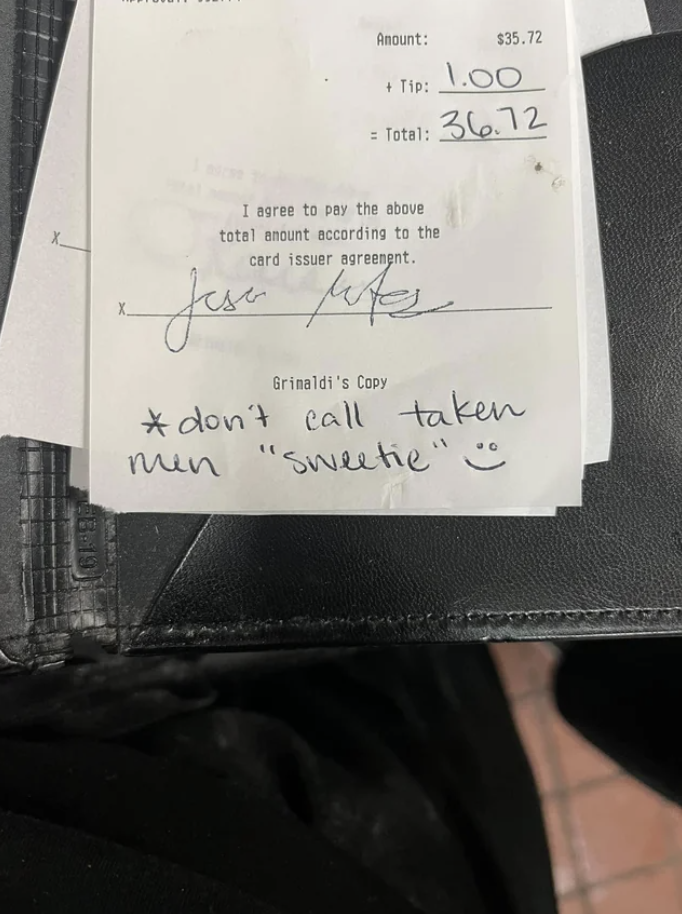 Amount: $35.72
+ Tip: 1.00
= Total: 36.72
I agree to pay the above
total amount according to the
card issuer agreement.
X
X
Grimaldi's Copy
*don't call taken
men "sweetie"